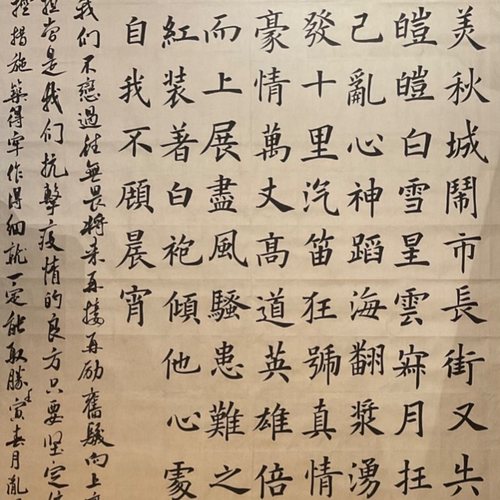 美秋城鬧市長街又失
皚皚白雪星雲寐月狂
己亂心神蹈海翻漿湧
發十里汽笛狂號真情
豪情萬丈高道英雄倍
而上展盡風騷患難之
紅装著白袍傾他心處
自我不頋晨宵
我们不戀過往無畏将来再接再励奮髮向上
担当是我们抗擊疫情的良方只要坚定
控措施築得牢作得细就一定能取勝壬寅春月胤